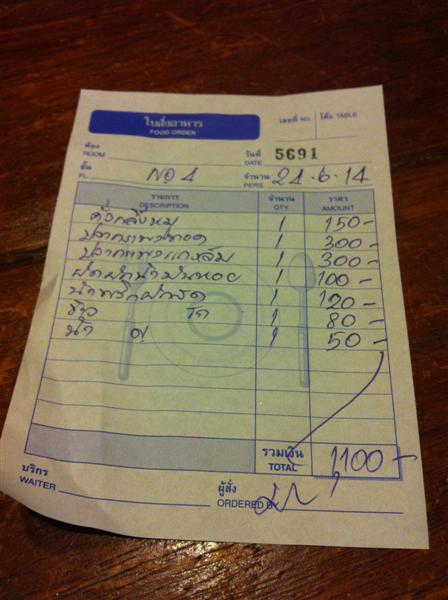 ใบสั่งอาหาร
FOOD ORDER
เลขที่ NO. โต๊ะ TABLE
ห้อง
ROOM
วันที่ 5691
DATE
ชั้น NO 1
FL.
จำนวน 21-6-14
PERS.
รายการ จำนวน ราคา
DESCRIPTION QTY. AMOUNT
คั่วกลิ้งหมู 1 150-
ปลากะพงทอด 1 300-
ปลากะพงแกงส้ม 1 300-
ผัดผักน้ำมันหอย 1 100-
น้ำพริกผักสด 1 120-
ข้าว 1 80-
น้ำ 1 50-
รวมเงิน 1,100-
TOTAL
บริกร
WAITER
ผู้สั่ง
ORDERED BY